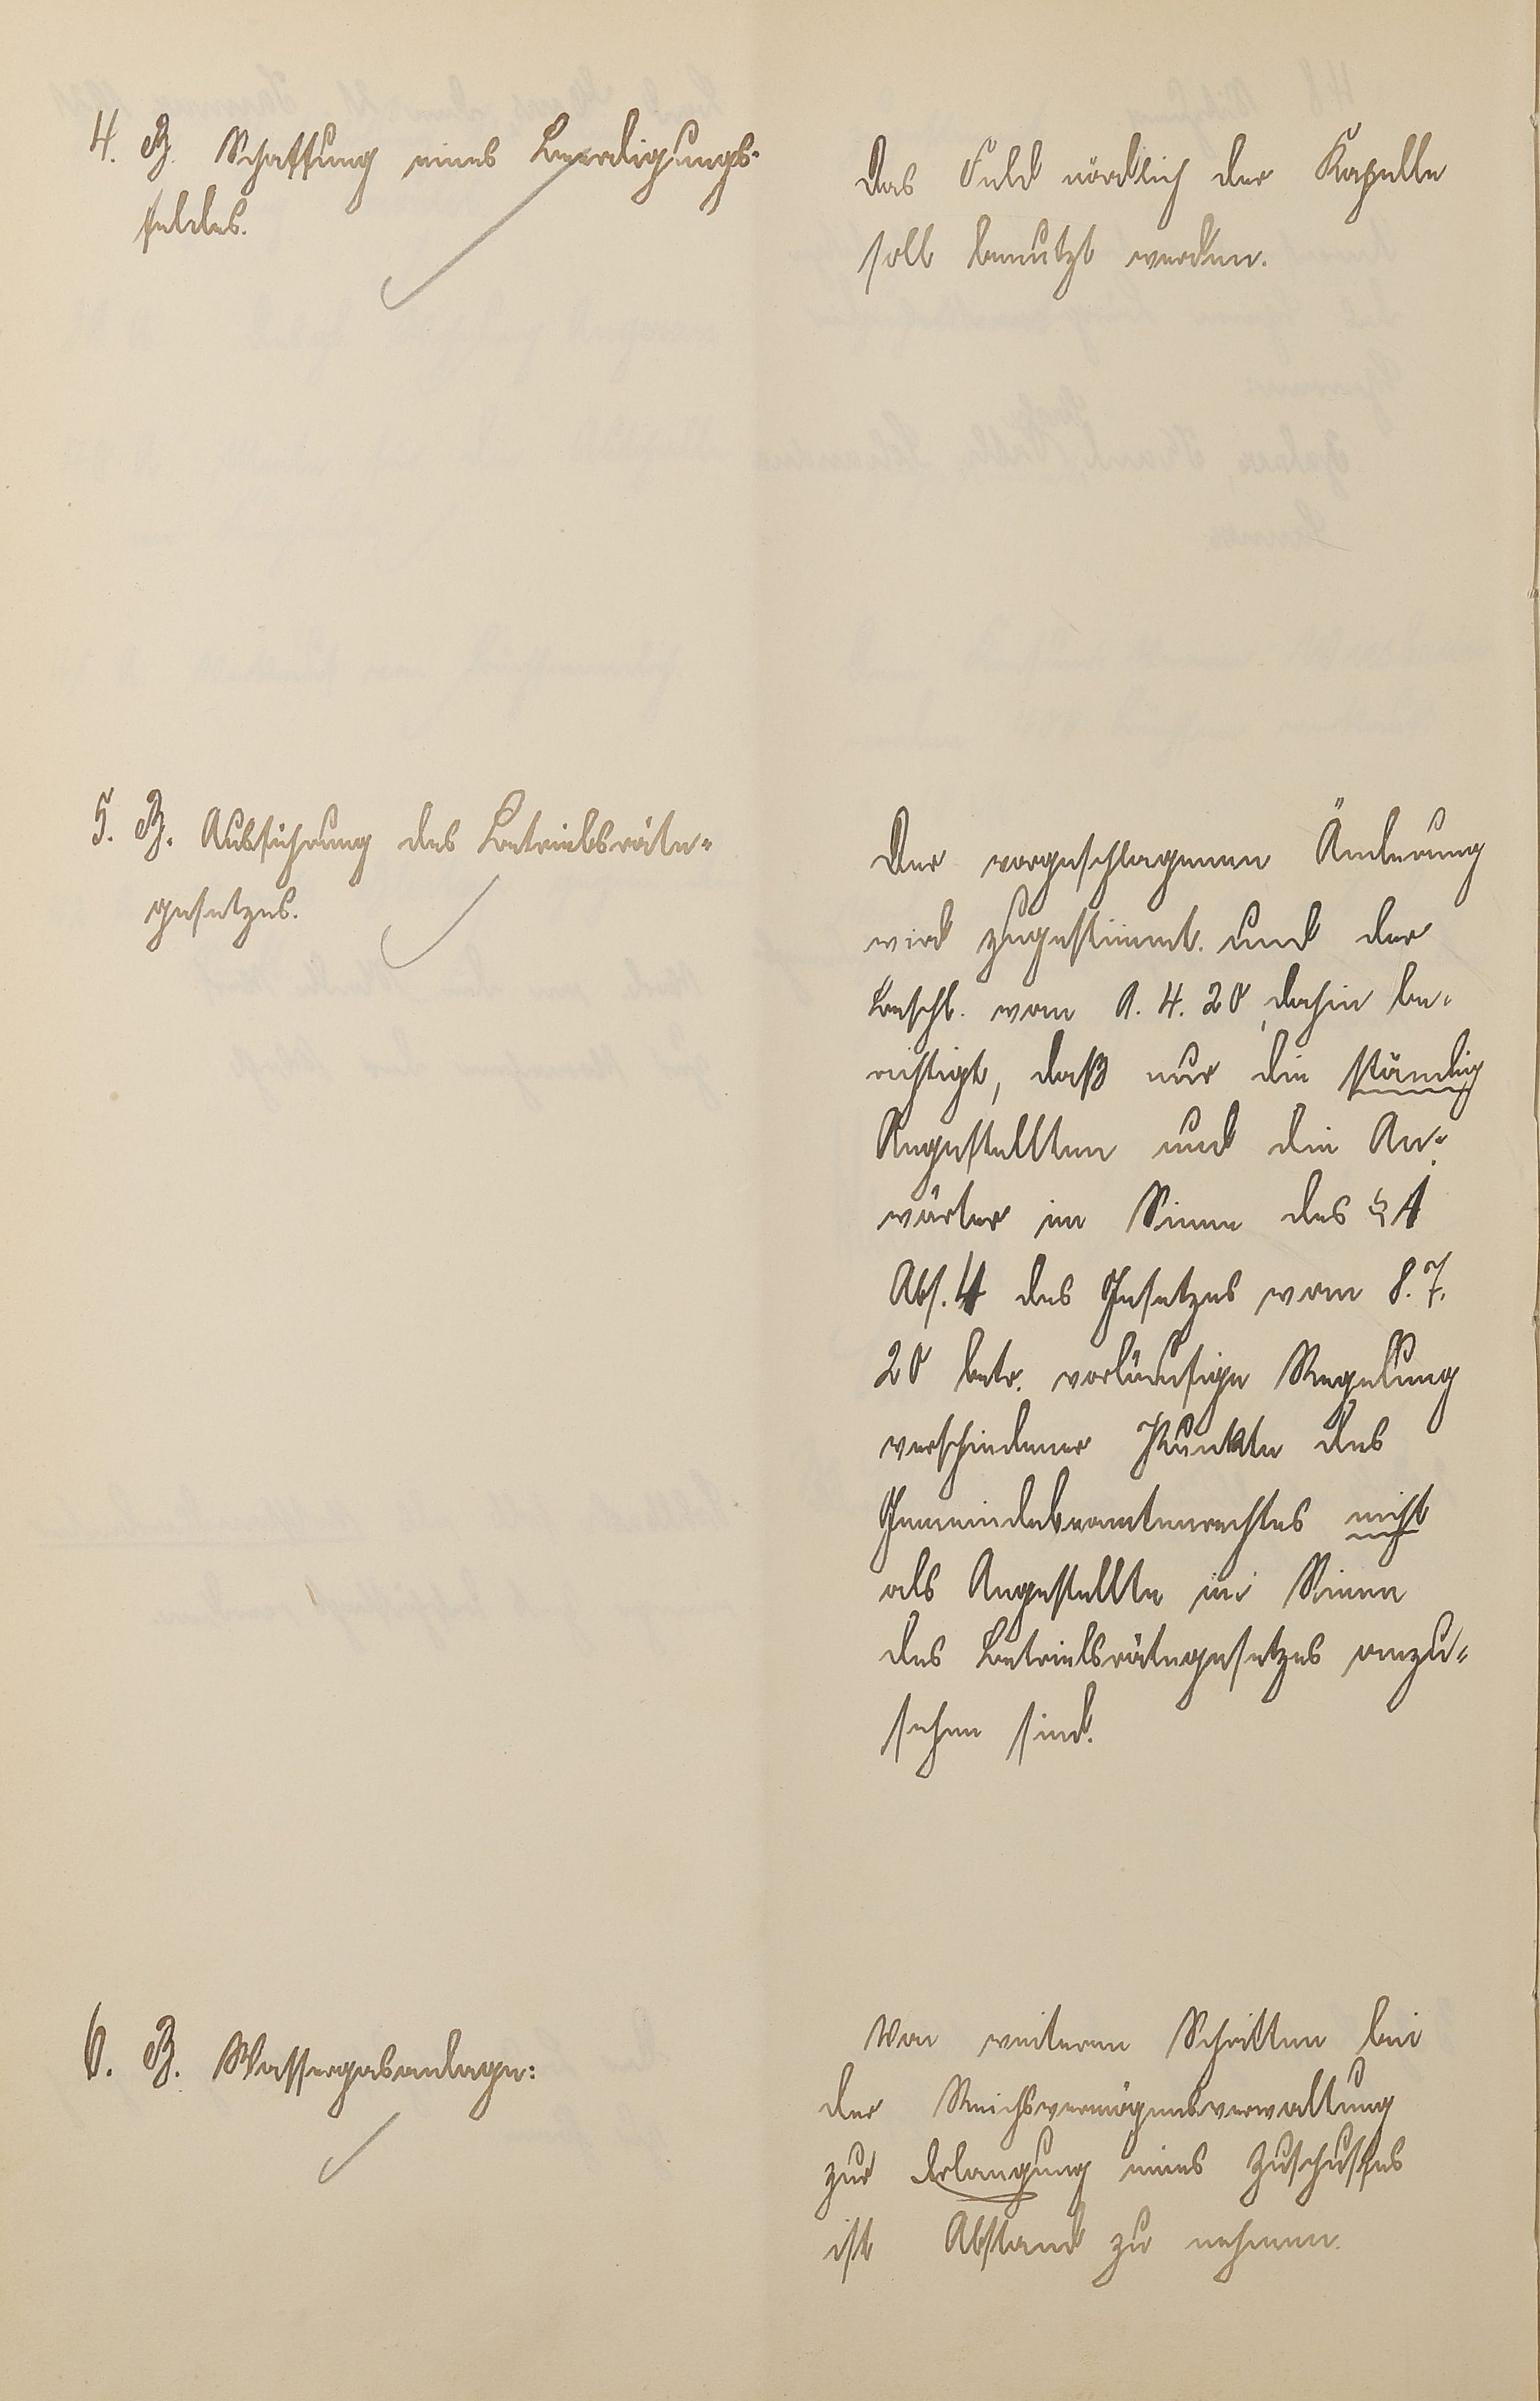 4. B. Schaffung eines Beerdigungs-
feldes.
Das Feld nördlich der Kapelle
soll benützt werden.
5. B. Ausführung des Betriebsräte-
gesetzes.
Der vorgeschlagenen Änderung
wird zugestimmt und der
Beschl. vom 1. 4. 20 dahin be-
richtigt, daß nur die ständig
Angestellten und die An-
wärter im Sinne des § 1
Abs. 4 des Gesetzes vom 8. 7.
20 betr. vorläufige Regelung
verschiedener Punkte des
Gemeindebeamtenrechtes nicht
als Angestellte im Sinne
des Betriebsrätegesetzes anzu-
sehen sind.
6. B. Wassergasanlage:
Von weiteren Schritten bei
der Reichsvermögensverwaltung
zur Erlangung eines Zuschusses
ist Abstand zu nehmen.